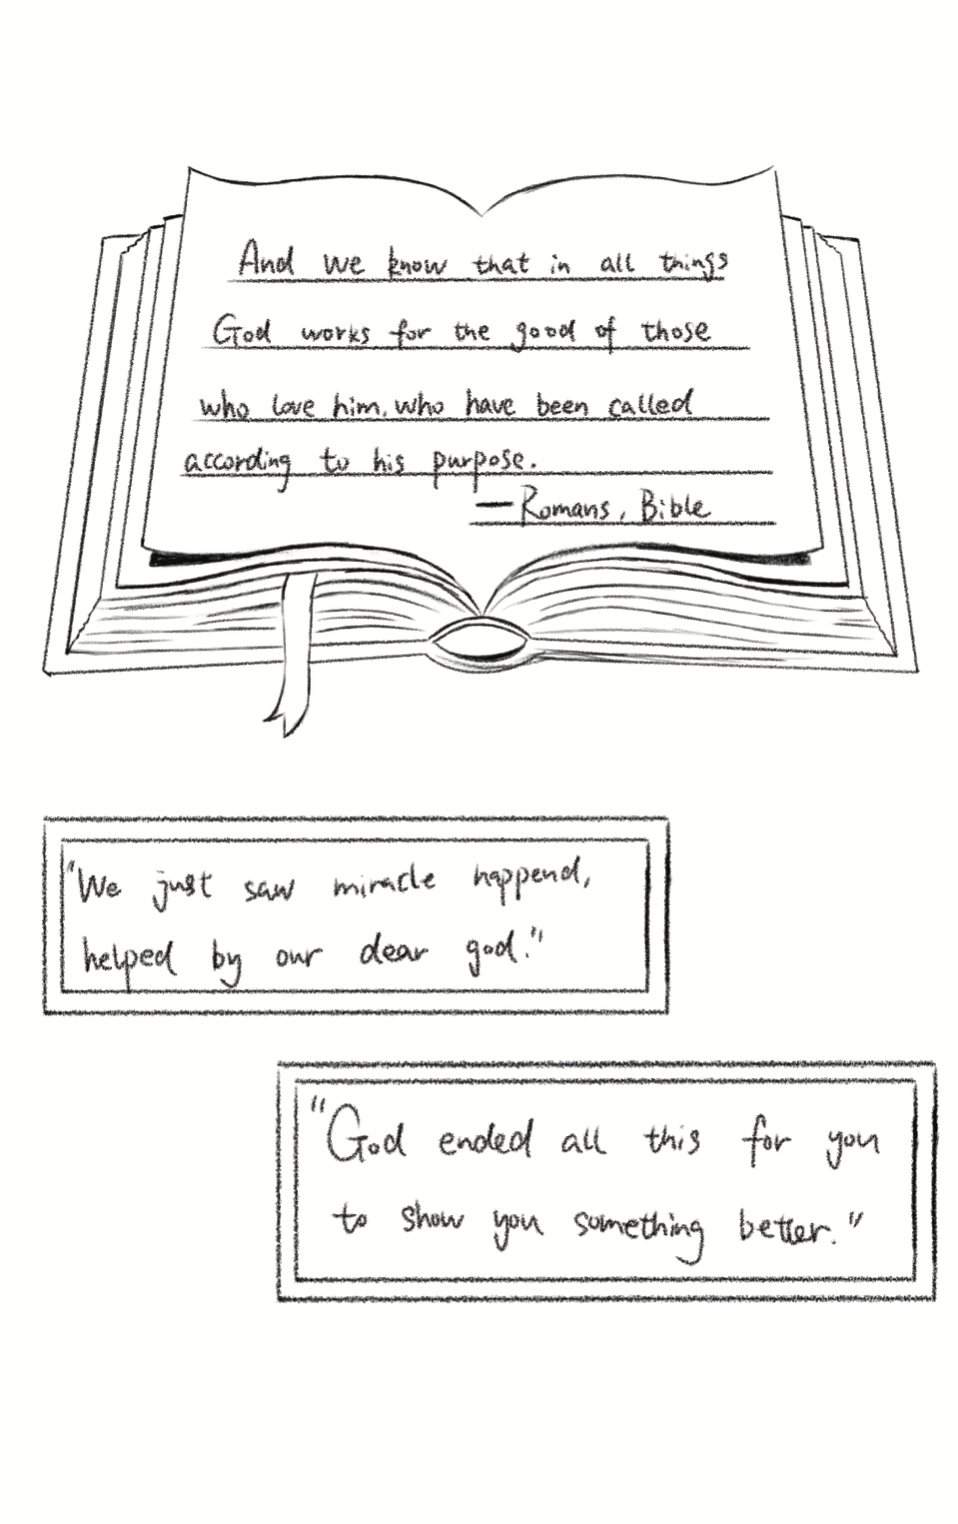 And we know that in all things
God works for the good of those
who love him, who have been called
according to his purpose.
— Romans, Bible
"We just saw miracle happend,
helped by our dear god."
"God ended all this for you
to show you something better."